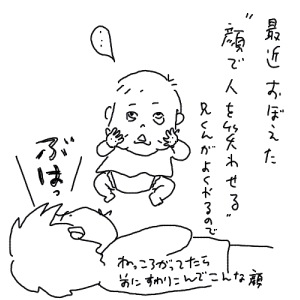 最近おぼえた
"顔で人を笑わせる"
兄くんがよくやるので
…
ぶはっ
ねっころがってたら
前にすわりこんでこんな顔